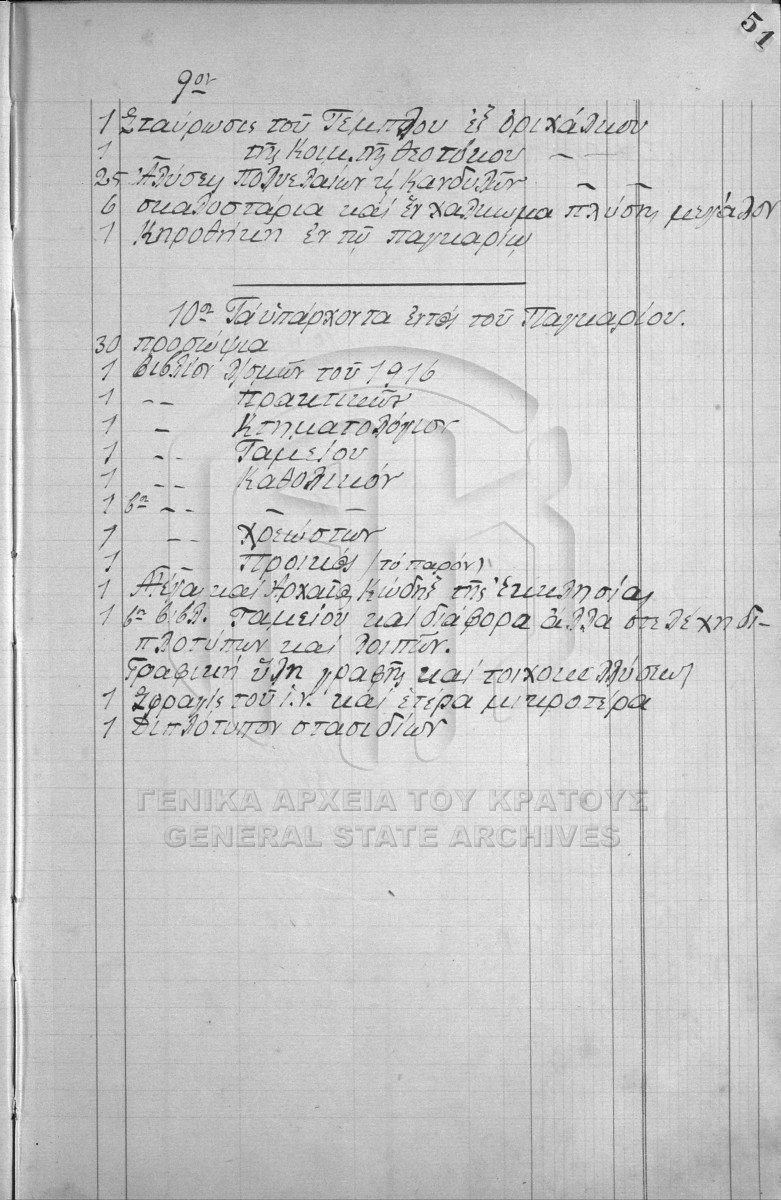 51
9ον
1 Σταύρωσις τοῦ Τέμπλου ἐξ ὀριχάλκου
1 " τῆς Κοιμ. τῆς Θεοτόκου – –
25 Ἁλύσεις πολυελαίων κ Κανδυλῶν – –
6 σκαλοστάρια καὶ ἓν χάλκωμα πλύσης μεγάλον
1 Κηροθήκη ἐν τῷ παγκαρίῳ
10ον Τὰ ὑπάρχοντα ἐντὸς τοῦ Παγκαρίου.
30 προσώψια
1 Βιβλίον λ/σμῶν τοῦ 1916
1 -- πρακτικῶν
1 – Κτηματολόγιον
1 -- Ταμείου
1 -- Καθολικόν
1 βον -- –
1 -- Χρεωστῶν
1 Προικός (τὸ παρόν)
1 Μέγας καὶ Ἀρχαῖος Κώδηξ τῆς Ἐκκλησίας
1 βον Βιβλ. Ταμείου καὶ διάφορα ἄλλα στελέχη δι-
πλοτύπων καὶ λοιπῶν.
Γραφικὴ ὕλη γραφῆς καὶ
1 Σφραγὶς τοῦ Ἱ.Ν. καὶ ἑτέρα μικροτέρα
1 Διπλότυπον στασιδίων
ΓΕΝΙΚΑ ΑΡΧΕΙΑ ΤΟΥ ΚΡΑΤΟΥΣ
GENERAL STATE ARCHIVES